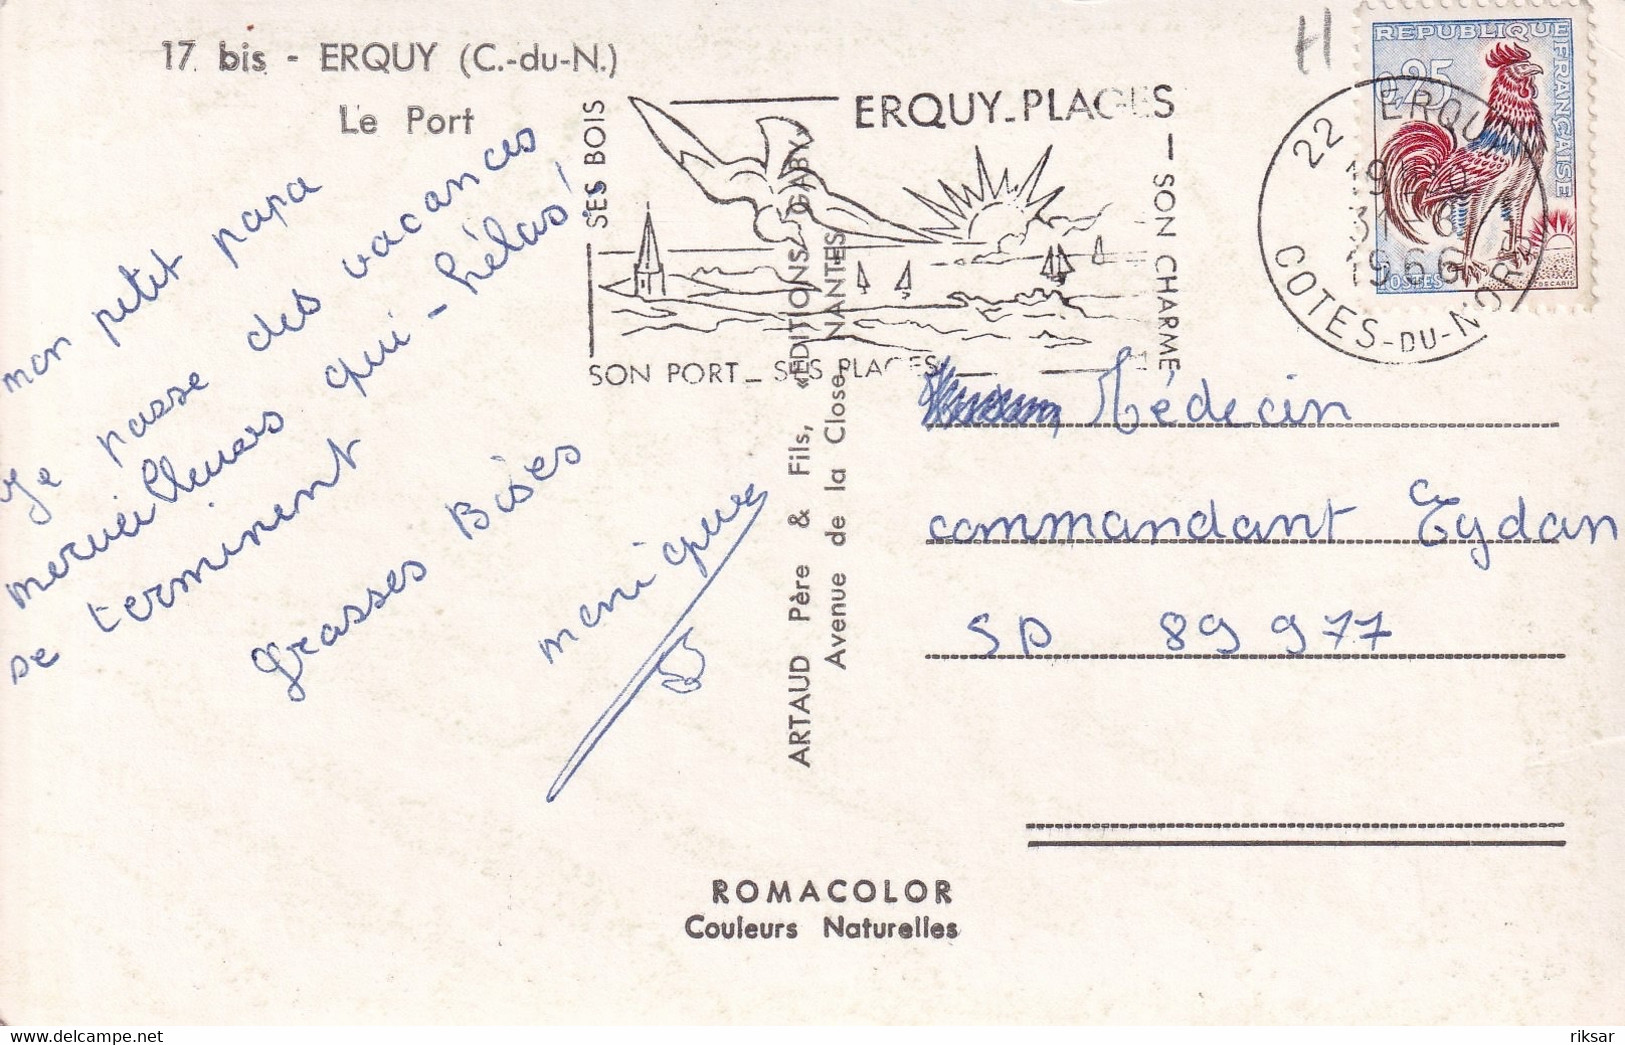 17 bis - ERQUY (C.-du-N.)
Le Port
mon petit papa
Je passe des vacances
merveilleuses qui - hélas!
se terminent
grosses Bises
monique
SES BOIS
ERQUY_PLAGES
SON CHARME
SON PORT_ SES PLAGES
ARTAUD Père & Fils, «EDITIONS GABY»
Avenue de la Close, NANTES
REPUBLIQUE FRANÇAISE
0,25
POSTES
DECARIS
22 ERQUY
31-8
1966
COTES-DU-NORD
H
Médecin
commandant Eydan
SP 89977
ROMACOLOR
Couleurs Naturelles
riksar